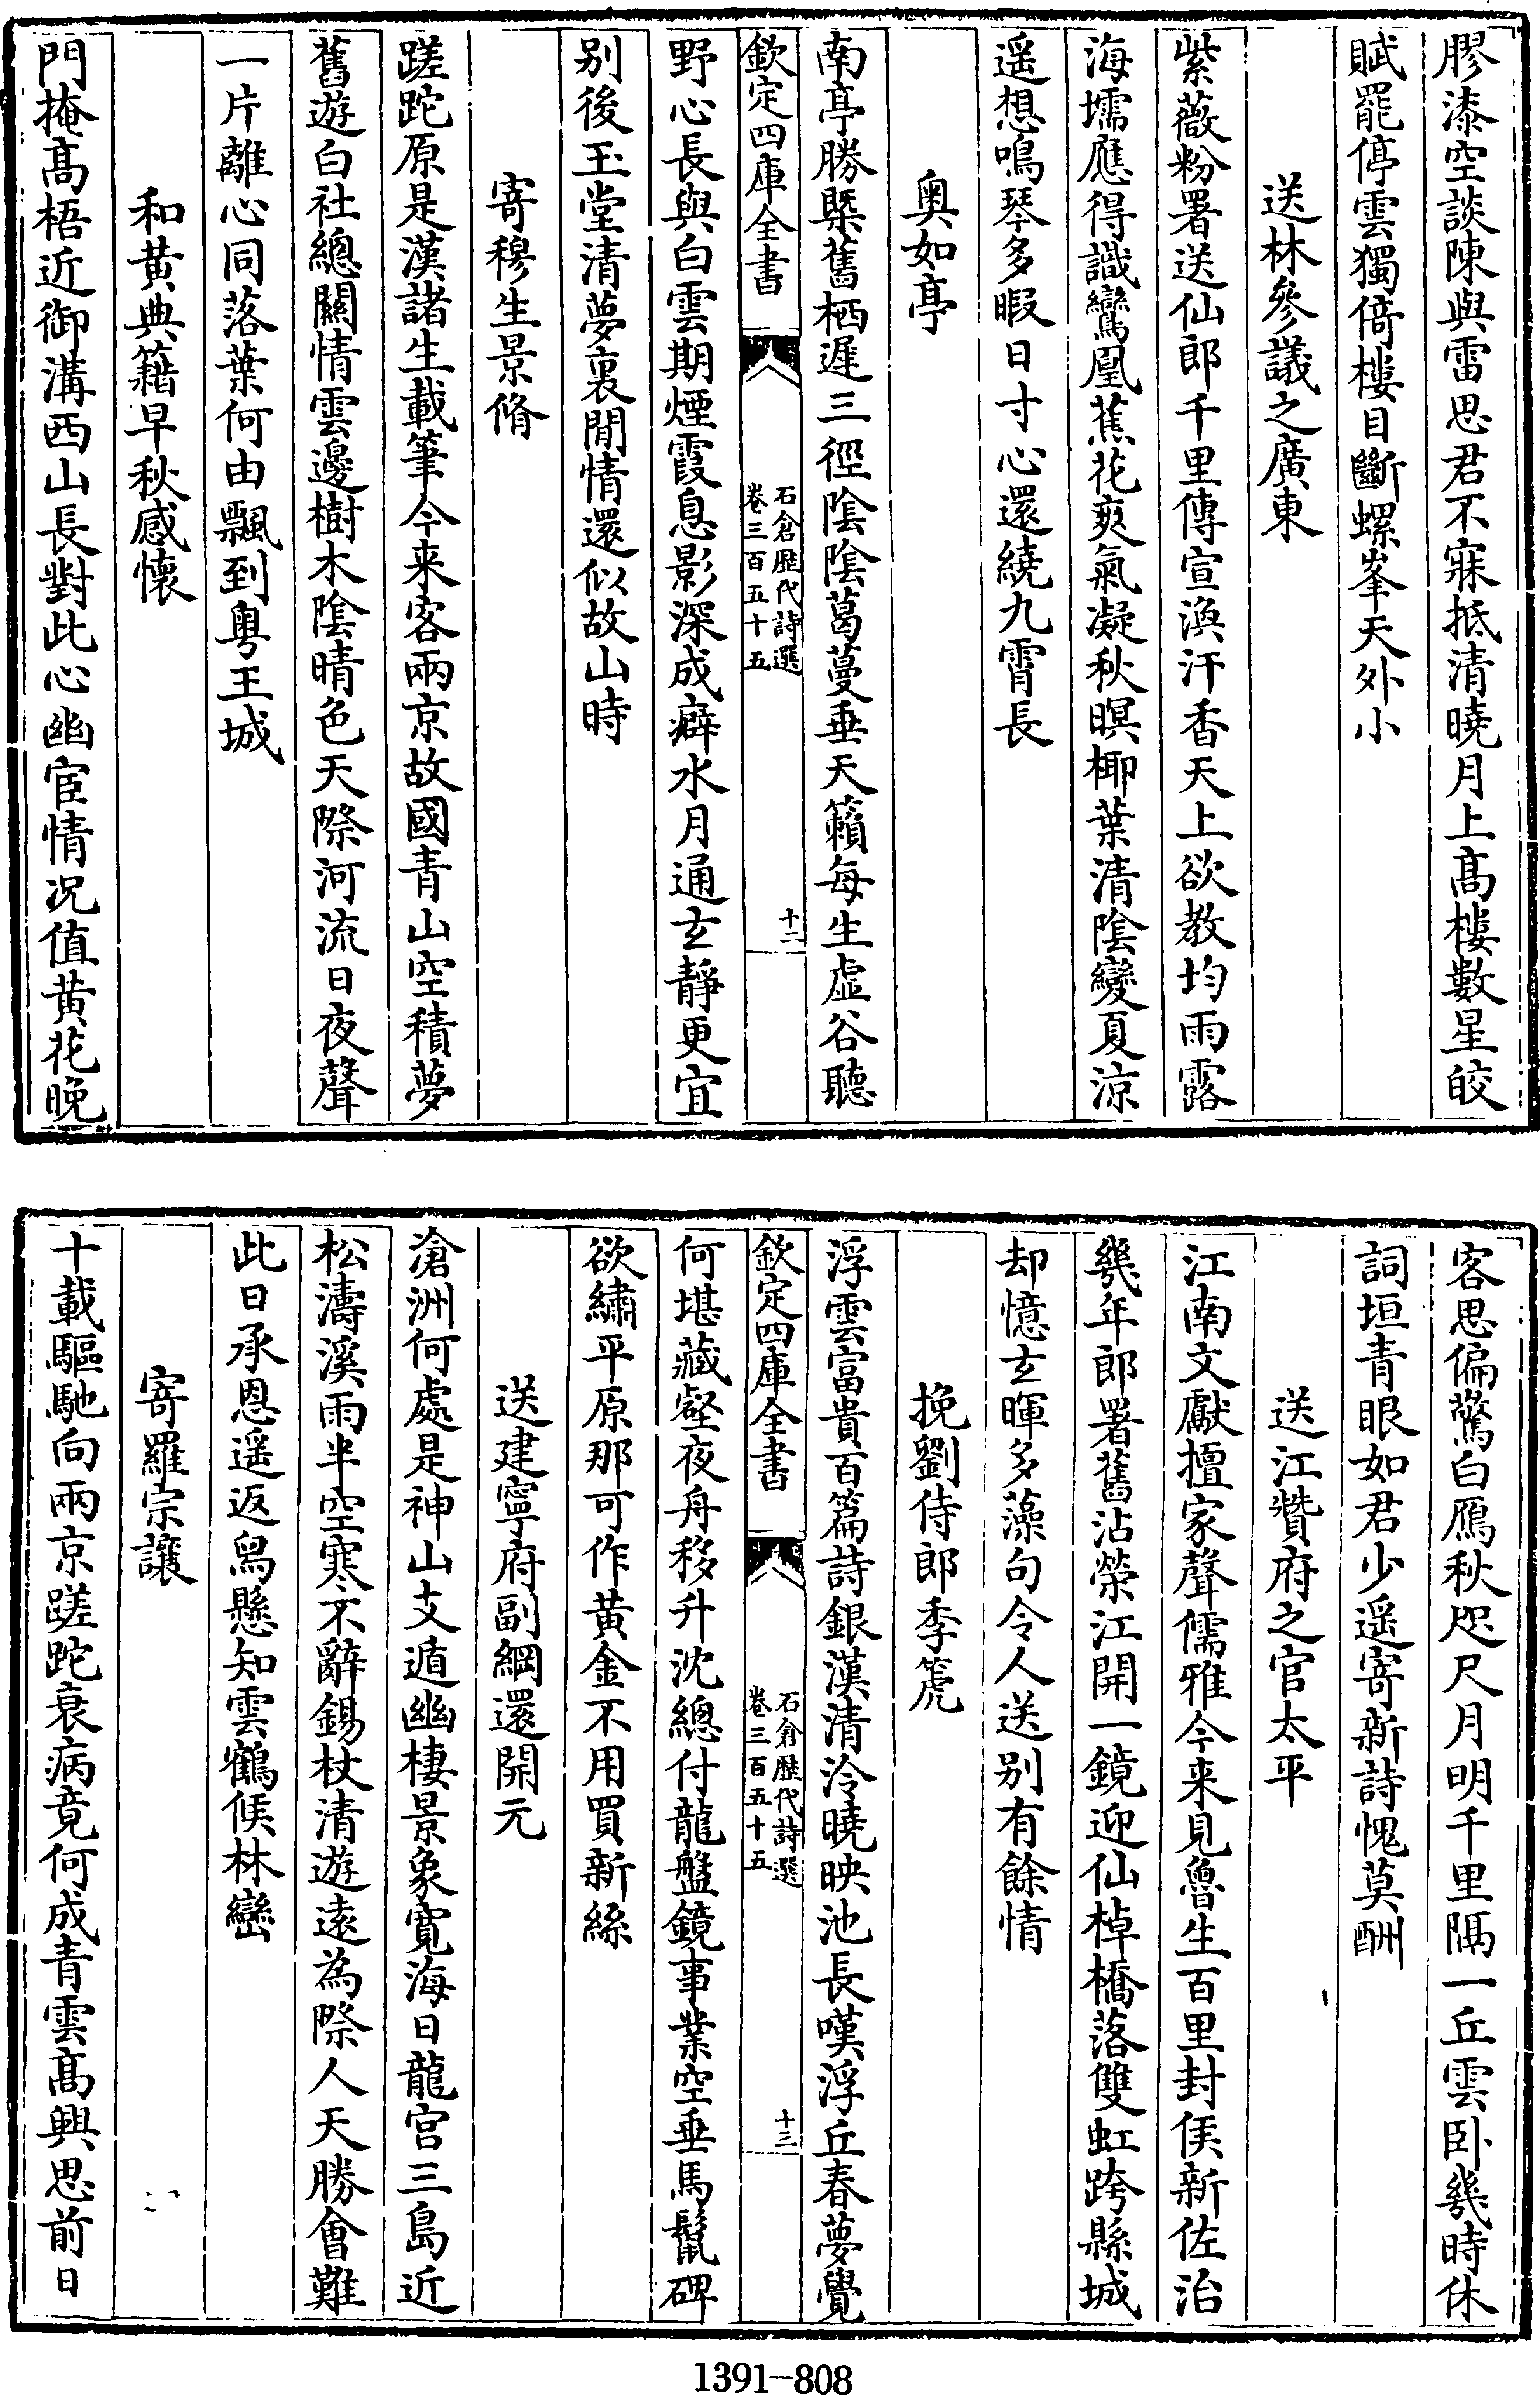 膠漆空談陳與雷思君不寐抵清曉月上髙樓數星皎
賦罷停雲獨倚樓目斷螺峯天外小
送林參議之廣東
紫薇粉署送仙郎千里傳宣渙汗香天上欲教均雨露
海壖應得識鸞凰蕉花爽氣凝秋暝椰葉清陰變夏涼
遥想鳴琴多暇日寸心還繞九霄長
奥如亭
南亭勝槩舊栖遲三徑陰陰葛蔓垂天籟每生虛谷聽
欽定四庫全書
石倉歷代詩選
卷三百五十五
十二
野心長與白雲期煙霞息影深成癖水月通玄靜更宜
别後玉堂清夢裏閒情還似故山時
寄穆生景脩
蹉跎原是漢諸生載筆今来客兩京故國青山空積夢
舊遊白社總關情雲邊樹木陰晴色天際河流日夜聲
一片離心同落葉何由飄到粤王城
和黄典籍早秋感懷
門掩髙梧近御溝西山長對此心幽宦情况值黄花晚
客思偏驚白鴈秋咫尺月明千里隔一丘雲卧幾時休
詞垣青眼如君少遥寄新詩愧莫酬
送江贊府之官太平
江南文獻擅家聲儒雅今来見魯生百里封侯新佐治
幾年郎署舊沾榮江開一鏡迎仙棹橋落雙虹跨縣城
却憶玄暉多藻句令人送别有餘情
挽劉侍郎季箎
浮雲富貴百篇詩銀漢清泠曉映池長嘆浮丘春夢覺
欽定四庫全書
石倉歷代詩選
卷三百五十五
十三
何堪藏壑夜舟移升沈總付龍盤鏡事業空垂馬鬛碑
欲繡平原那可作黄金不用買新絲
送建寧府副綱還開元
滄洲何處是神山支遁幽棲景象寛海日龍宫三島近
松濤溪雨半空寒不辭錫杖清遊遠為際人天勝會難
此日承恩遥返舄懸知雲鶴候林巒
寄羅宗讓
十載驅馳向兩京蹉跎衰病竟何成青雲髙興思前日
1391-808